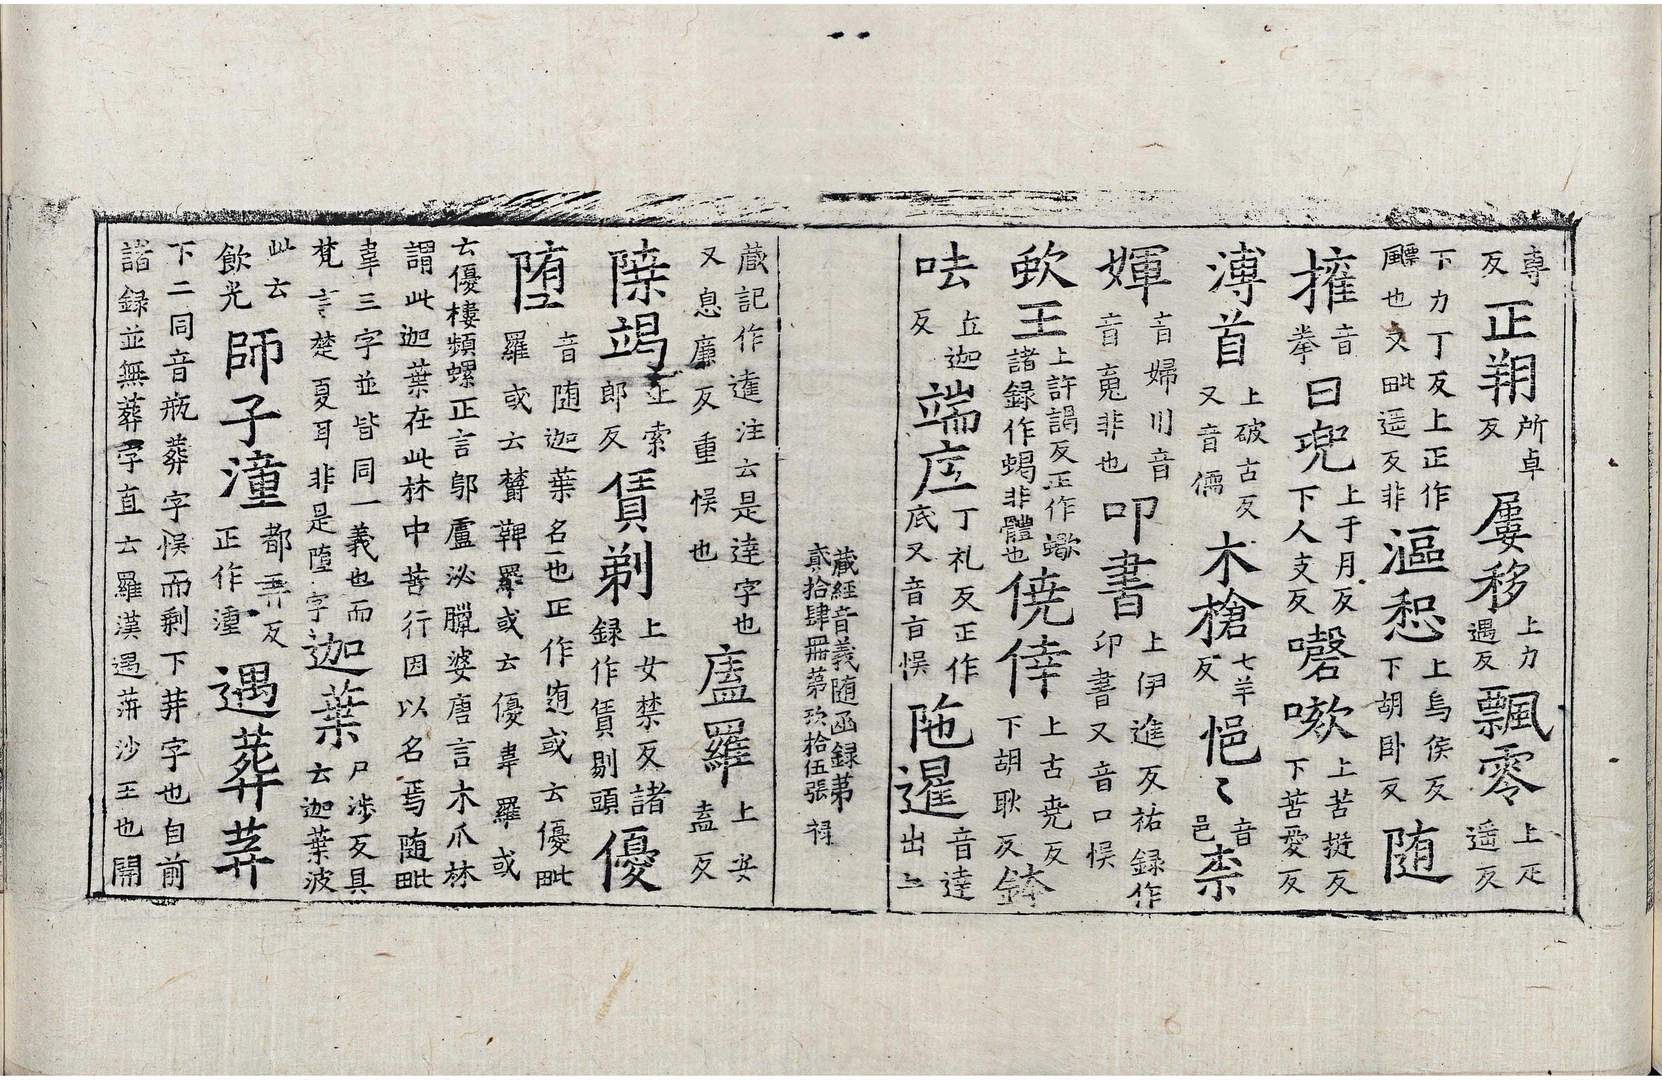 尃反正朔所卓反屢移上力遇反飄零上疋遥反
下力丁反上正作飃也又毗遥反非漚惒上烏侯反下胡卧反随
擁音拳曰兜上于月反下人支反嗽上苦挺反下苦愛反
溥首上破古反又音儒木槍七羊反悒〻音邑柰
媈音婦川音音䰟非也叩書上伊進反祐録作印書又音口悮
王上許謁反正作蠍諸録作蝎非體也僥倖上古尭反下胡耿反
呿丘迦反端底丁礼反正作底又音盲悮陁暹音達出上
藏經音義随函録苐貳拾肆冊苐玖拾伍張 禄
蔵記作達注云是達字也又息廉反重悮也廅羅上安盍反
竭上索郎反賃剃上女禁反諸録作賃剔頭優
堕音随迦葉名也正作或云優毗羅或云欝鞞羅或云優韋羅或
云優樓頻螺正言鄔盧泌臘婆唐言木爪林謂此迦葉在此林中苦行因以名焉随毗
韋三字並皆同一義也而梵言楚夏耳非是墮字迦葉尸涉反具云迦葉波
此云飲光師子潼都弄反正作湩遇葬莽
下二同音瓶葬字悮而剩下莽字也自前
諸録並無葬字直云羅漢遇蓱沙王也開